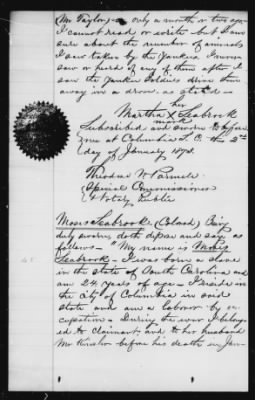 Mr Taylor, — only a month or two ago
I cannot read or write — but I am
sure about the number of animals
I saw taken by the Yankees I never
saw or heard of any of them after I
saw the Yankee Soldiers drive them
away in a drove as stated —
her
Martha X Seabrook
mark
Subscribed and sworn to before
me at Columbia S. C. this 2d
day of January 1873.
Theodore W Parmele
Special Commissioner
& Notary Public
Moses Seabrook (Colored) being
duly sworn doth depose and say as
follows — "My name is Moses
Seabrook — I was born a slave
in the state of South Carolina and
am 24 years of age — I reside in
the City of Columbia in said
state and am a labourer by oc-
cupation — During the war I belong-
ed to Claimant, and to her husband
Mr Kinsler before his death in Jan-